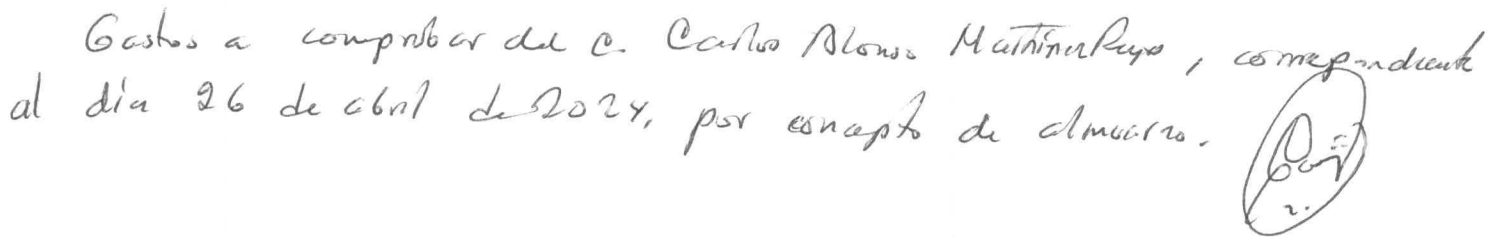 Gastos a comprobar del C. Carlos Alonso Martínez Rayo, correspondiente
al día 26 de abril de 2024, por concepto de almuerzo.